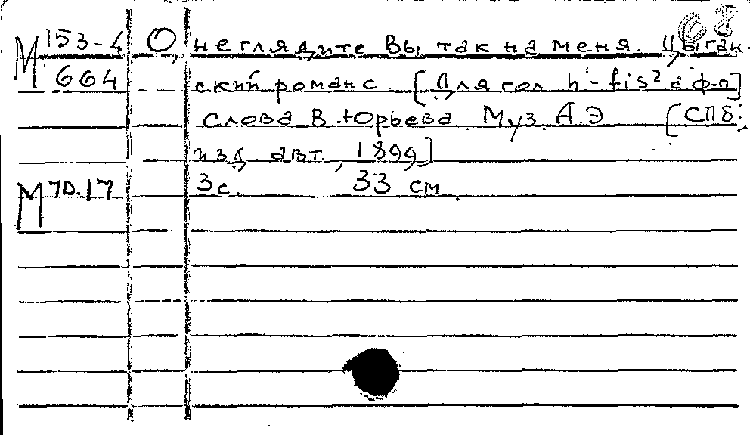 М 153-4 О, не глядите Вы, так на меня. Цыган-
664 ский романс. [Для гол. h-fis² с ф-п]
Слова В. Юрьева. Муз. А.Э. [СПб.,
изд. авт., 1899]
М 70.17 3 с. 33 см.